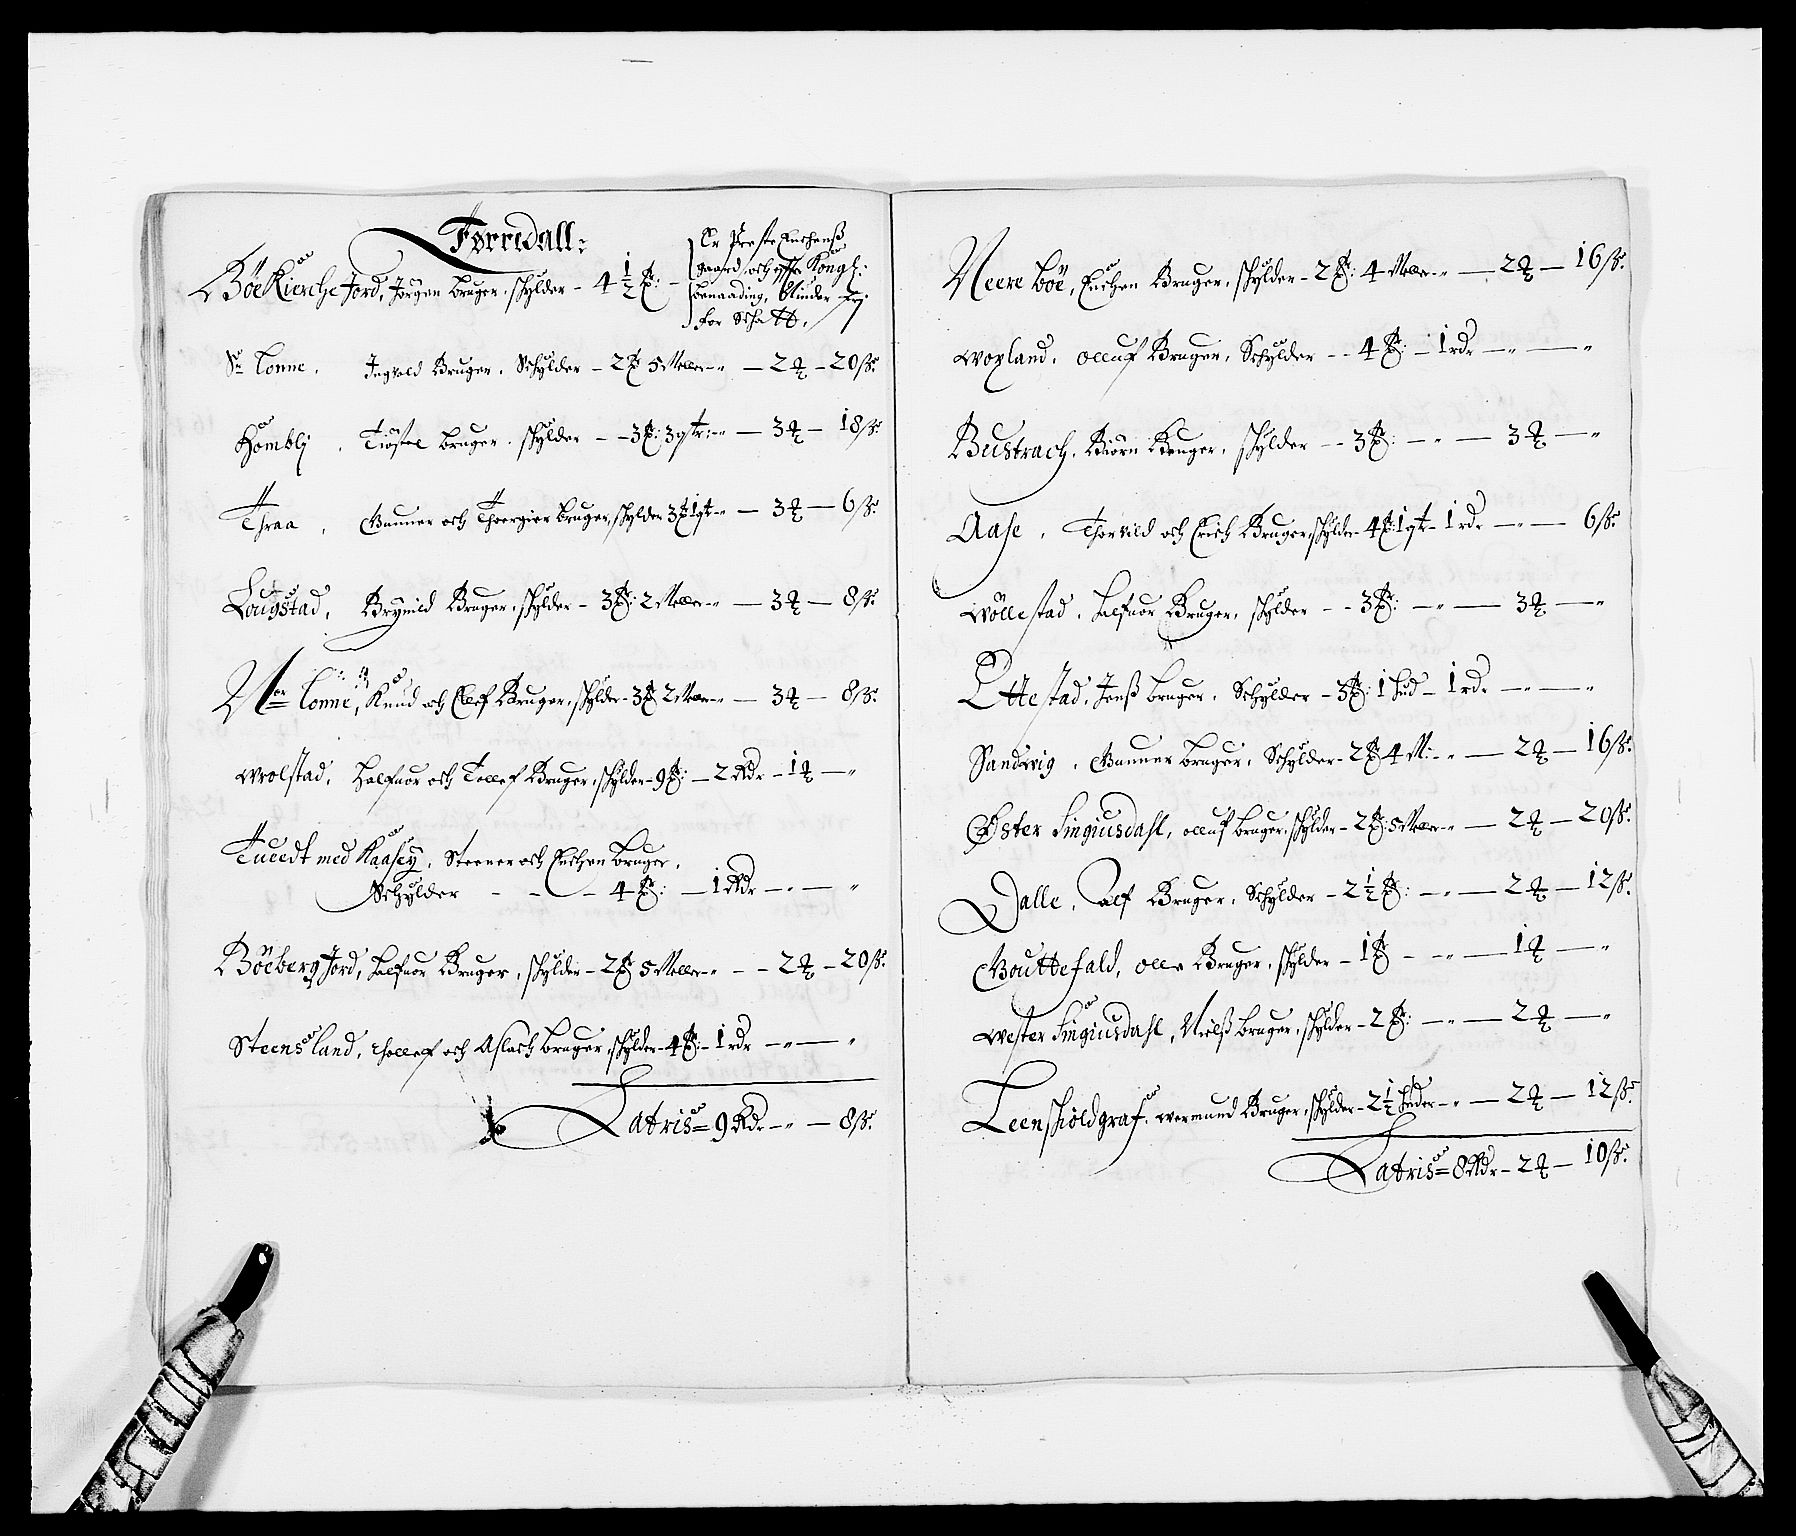 Torridall:
Böe Kierche Jord, Jörgen bruger, schylder - 4½ ℔: -
Er Preste Enchenß
gaard, och effter Kongl:
benaading, ... frj
for Schatt.
Sr Lonne. Ingvold Bruger. Schylder - 2 ℔ 5 Meller - " - 2 ꝗ - 20 ß.
Homblj. Tiøstel bruger. schylder - - 3 ℔: 3 qtr: - " - 3 ꝗ - 18 ß.
Thraa, Gunner och Thorgier bruger, schylder 3 ℔ 1 qt - " - 3 ꝗ - 6 ß.
Lougstad, Brynild Bruger, schylder - 3 ℔: 2 Meller - " - 3 ꝗ - 8 ß.
Nor Lonne, Knud och Ellef Bruger, schylder - 3 ℔ 2 Meller - " - 3 ꝗ - 8 ß.
Wrolstad, Halfuor och Tollef Bruger, schylder - 9 ℔: - 2 Rdr - 1 ꝗ - "
Tuedt med Kaasen, Steener och Enchen bruger,
Schylder - - - 4 ℔: - 1 Rdr - " - "
Böeberg Jord, halfuor Bruger, schylder - 2 ℔ 5 Meller - " - - 2 ꝗ - 20 ß.
Steensland, Thollef och Aslach bruger, schylder - 4 ℔: - 1 rdr - " - "
Latris = 9 Rdr - " - 8 ß.
Neere böe, Enchen Bruger, schylder - 2 ℔: 4 Meller - " - 2 ꝗ - 16 ß.
Woxland, Olluf Bruger, Schylder - - 4 ℔: - 1 rdr - " - "
Bustrach, Biörn Bruger, schylder - - 3 ℔: - " - 3 ꝗ - "
Aase, Thorvild och Erich Bruger, schylder - 4 ℔: 1 qtr - 1 rdr - " - 6 ß.
Wöllestad, halfuor Bruger, schylder - - 3 ℔: - " - 3 ꝗ - "
Ettestad, Jenß bruger, Schylder - 3 ℔: 1 hud - 1 rdr - " - "
Sandvig, Gunner bruger, Schylder - 2 ℔ 4 M: - " - 2 ꝗ - 16 ß.
Øster Singiusdahl, olluf bruger, schylder - 2 ℔: 5 Meller - " - 2 ꝗ - 20 ß.
Dalle, Alf Bruger, Schylder - 2½ ℔: - " - 2 ꝗ - 12 ß.
Gouttefald, Olle Bruger, schylder - 1 ℔ - " - 1 ꝗ - "
Wester Singiusdahl, Nielß bruger, schylder - 2 ℔: - " - 2 ꝗ - "
Teenschioldgraf, Wermund Bruger, schylder - 2½ huder - " - 2 ꝗ - 12 ß.
Latris = 8 Rdr - 2 ꝗ - 10 ß.